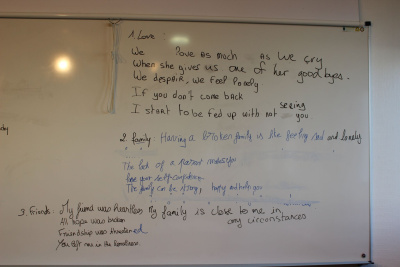 1. Love :
We love as much as we cry
When she gives us one of her goodbyes.
We despair, we feel lonely
If you don't come back
I start to be fed up with not seeing you
2. family: Having a broken family is like feeling sad and lonely
The lack of a parent makes you
lose your self-confidence
The family can be strong, happy and
3. Friends: My friend was heartless My family is close to me in any circumstances
All hope was broken
Friendship was threatened
You left me in the loneliness.